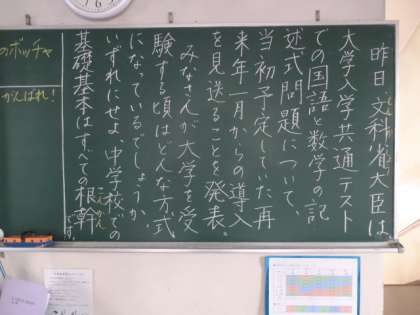 昨日、文科省大臣は、
大学入学共通テスト
での国語と数学の記
述式問題について、
当初予定していた再
来年一月からの導入
を見送ることを発表。
みなさんが大学を受
験する頃はどんな方式
になっているでしょうか。
いずれにせよ、中学校での
基礎基本はすべての根幹
こんかん
です。
のボッチャ
がんばれ!